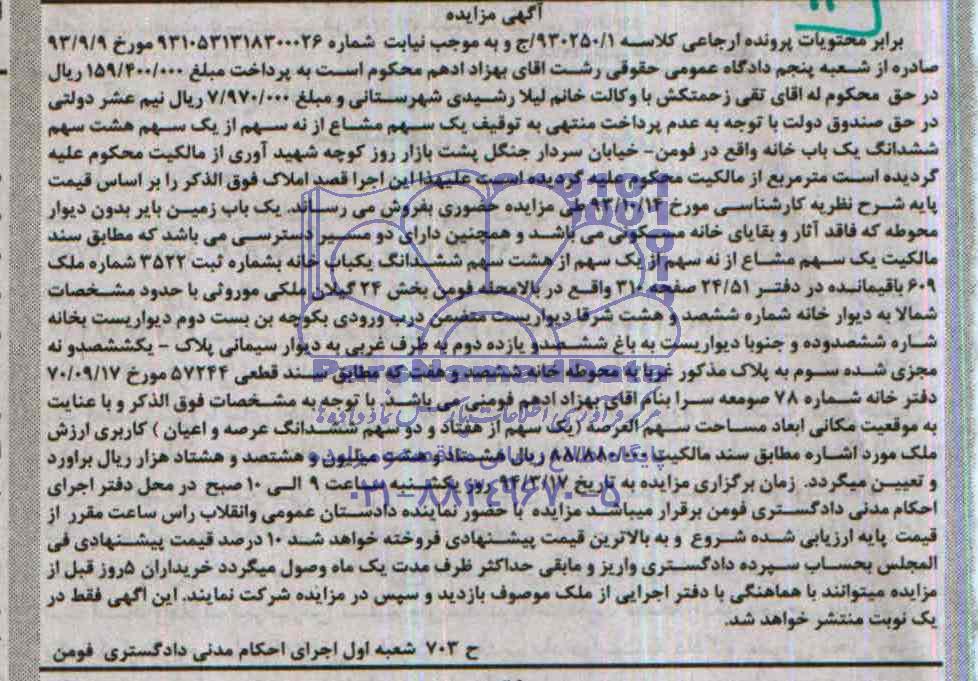 آگهی مزایده
برابر محتویات پرونده ارجاعی کلاسه ۹۳۰۲۵۰/۱/ج و به موجب نیابت شماره ۹۳۱۰۵۳۱۳۱۸۳۰۰۰۲۶ مورخ ۹۳/۹/۹
صادره از شعبه پنجم دادگاه عمومی حقوقی رشت اقای بهزاد ادهم محکوم است به پرداخت مبلغ ۱۵۹/۴۰۰/۰۰۰ ریال
در حق محکوم له اقای تقی زحمتکش با وکالت خانم لیلا رشیدی شهرستانی و مبلغ ۷/۹۷۰/۰۰۰ ریال نیم عشر دولتی
در حق صندوق دولت با توجه به عدم پرداخت منتهی به توقیف یک سهم مشاع از نه سهم از یک سهم هشت سهم
ششدانگ یک باب خانه واقع در فومن- خیابان سردار جنگل پشت بازار روز کوچه شهید آوری از مالکیت محکوم علیه
گردیده است مترمربع از مالکیت محکوم علیه گردیده است علیهذا این اجرا قصد املاک فوق الذکر را بر اساس قیمت
پایه شرح نظریه کارشناسی مورخ ۹۳/۱۰/۱۴ طی مزایده حضوری بفروش می رساند. یک باب زمین بایر بدون دیوار
محوطه که فاقد آثار و بقایای خانه مسکونی می باشد و همچنین دارای دو مسیر دسترسی می باشد که مطابق سند
مالکیت یک سهم مشاع از نه سهم از یک سهم از هشت سهم ششدانگ یکباب خانه بشماره ثبت ۳۵۲۲ شماره ملک
۶۰۹ باقیمانده در دفتر ۲۴/۵۱ صفحه ۳۱۰ واقع در بالامحله فومن بخش ۲۴ گیلان ملکی موروثی با حدود مشخصات
شمالا به دیوار خانه شماره ششصد و هشت شرقا دیواریست متضمن درب ورودی بکوچه بن بست دوم دیواریست بخانه
شاره ششصدوده و جنوبا دیواریست به باغ ششصدو یازده دوم به طرف غربی به دیوار سیمانی پلاک - یکششصدو نه
مجزی شده سوم به پلاک مذکور غربا به محوطه خانه ششصد و هفت که مطابق سند قطعی ۵۷۲۴۴ مورخ ۷۰/۰۹/۱۷
دفتر خانه شماره ۷۸ صومعه سرا بنام اقای بهزاد ادهم فومنی می باشد. با توجه به مشخصات فوق الذکر و با عنایت
به موقعیت مکانی ابعاد مساحت سهم العرصه (یک سهم از هفتاد و دو سهم ششدانگ عرصه و اعیان ) کاربری ارزش
ملک مورد اشاره مطابق سند مالکیت ۸۸/۸۸۰/۰۰۰ ریال هشتاد و هشت میلیون و هشتصد و هشتاد هزار ریال براورد
و تعیین میگردد. زمان برگزاری مزایده به تاریخ ۹۴/۳/۱۷ روز یکشنبه ساعت ۹ الی ۱۰ صبح در محل دفتر اجرای
احکام مدنی دادگستری فومن برقرار میباشد مزایده با حضور نماینده دادستان عمومی وانقلاب راس ساعت مقرر از
قیمت پایه ارزیابی شده شروع و به بالاترین قیمت پیشنهادی فروخته خواهد شد ۱۰ درصد قیمت پیشنهادی فی
المجلس بحساب سپرده دادگستری واریز و مابقی حداکثر ظرف مدت یک ماه وصول میگردد خریداران ۵روز قبل از
مزایده میتوانند با هماهنگی با دفتر اجرایی از ملک موصوف بازدید و سپس در مزایده شرکت نمایند. این اگهی فقط در
یک نوبت منتشر خواهد شد.
ح ۷۰۳ شعبه اول اجرای احکام مدنی دادگستری فومن
ParsNamadData
۰۲۱-۸۸۳۴۹۶۷۰-۵